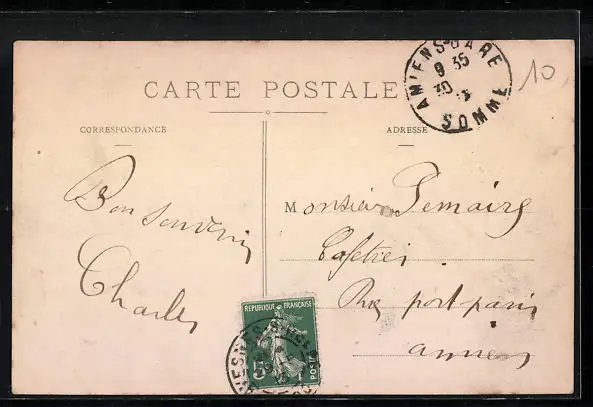 CARTE POSTALE
AMIENS-GARE
9 35
30
SOMME
10
CORRESPONDANCE
ADRESSE
Bon Souvenir
Charles
Monsieur
Cafetier
Rue port paris
amiens
REPUBLIQUE FRANÇAISE
5c
POSTES